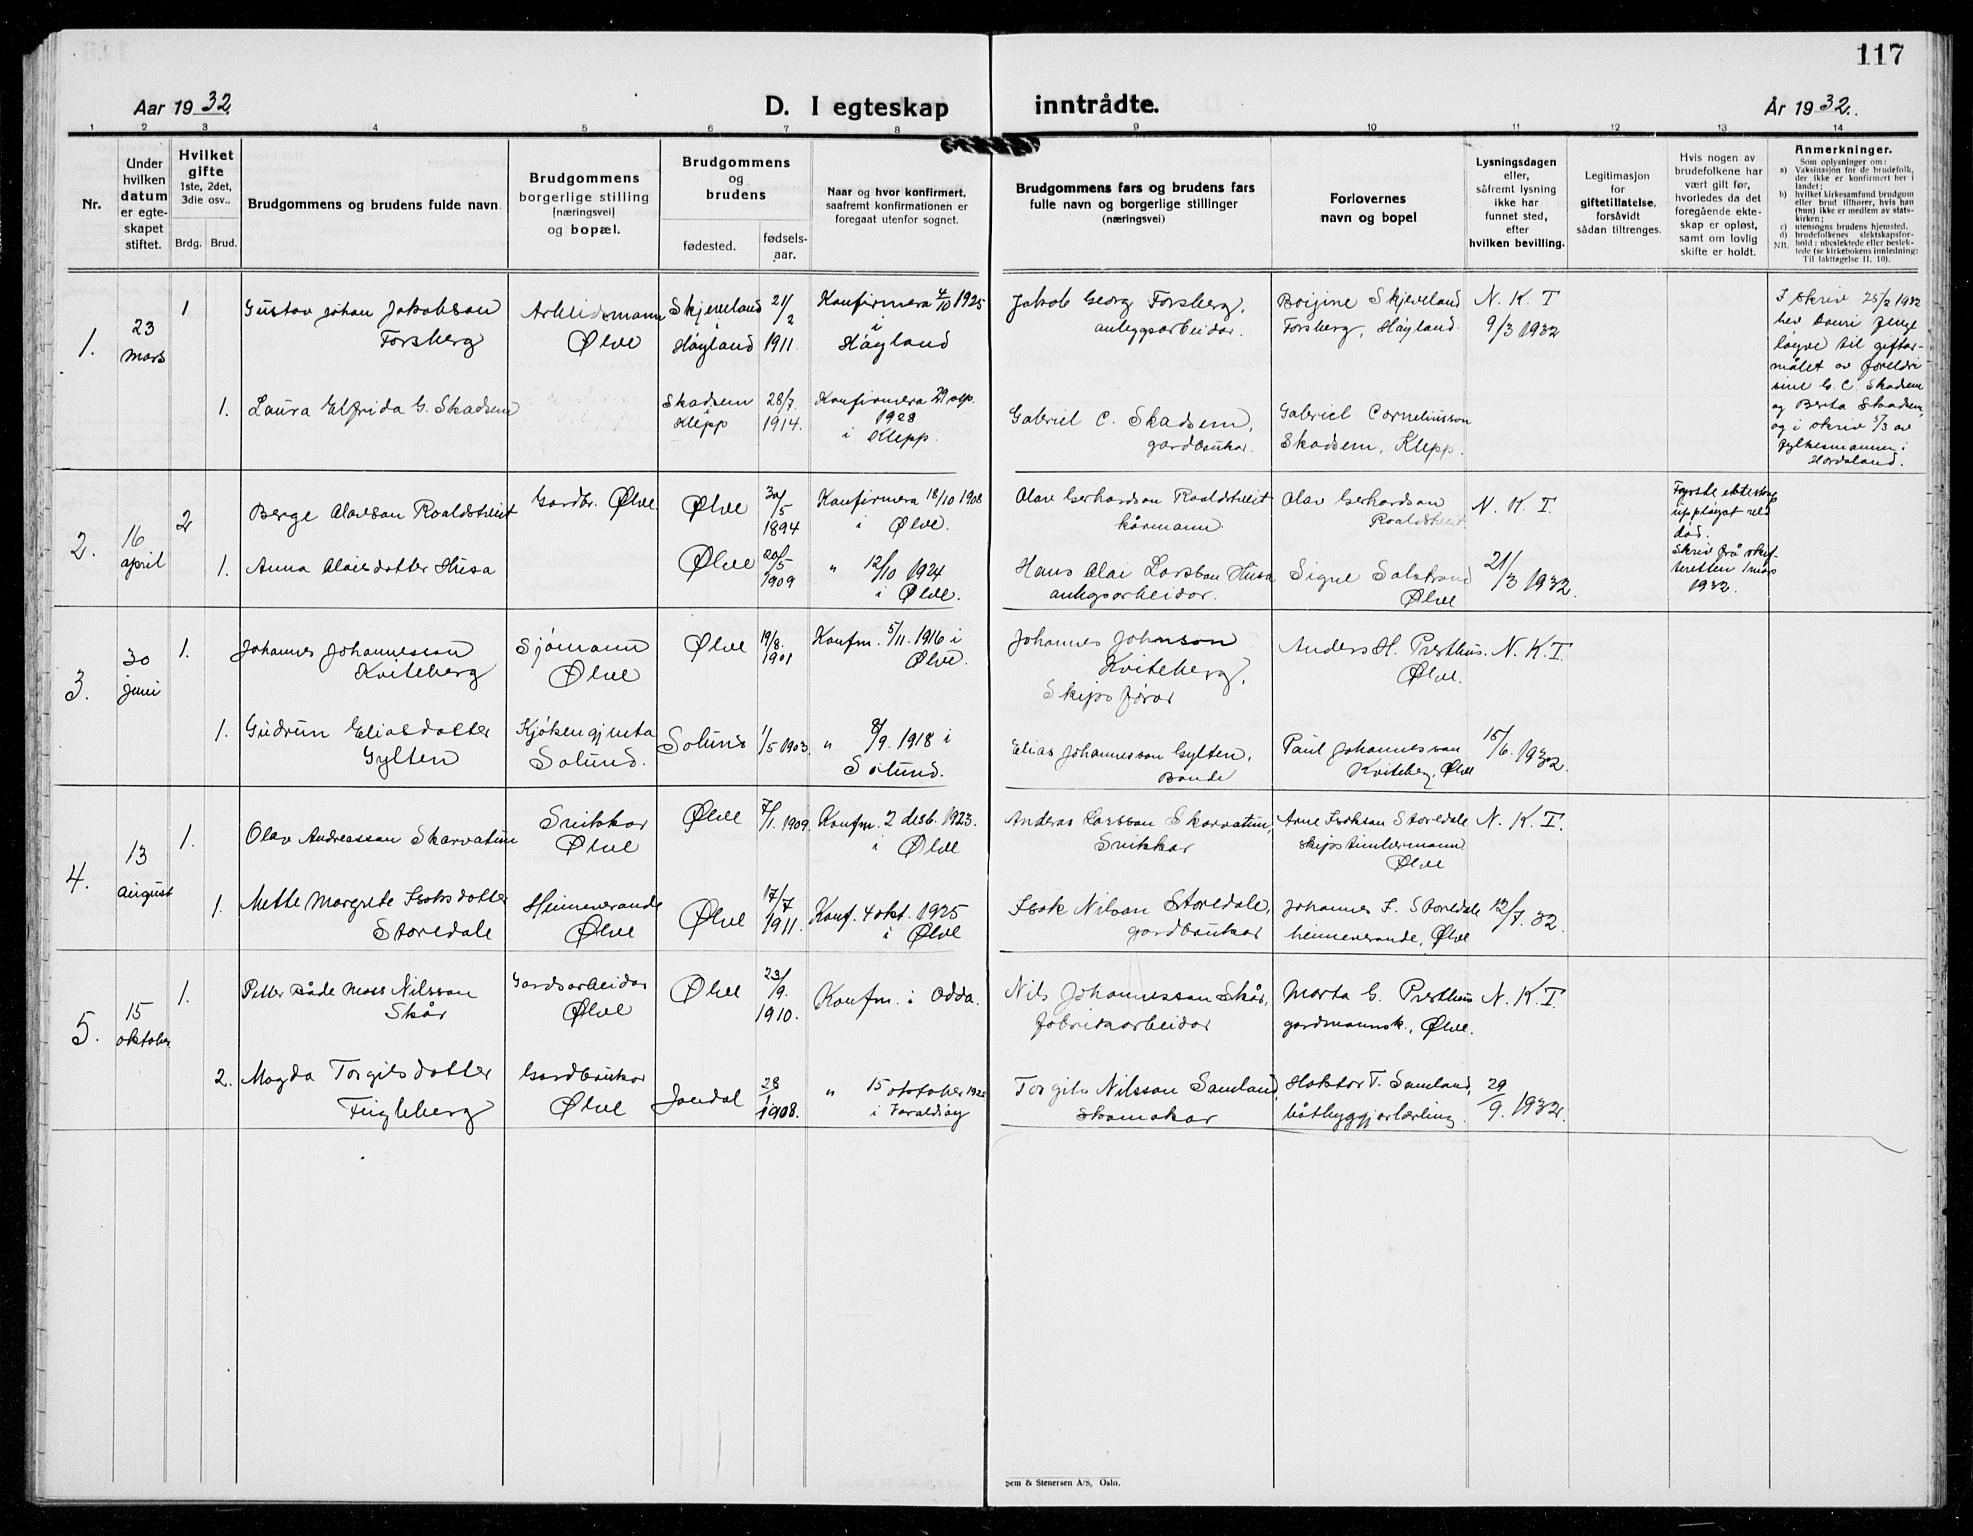 117
Aar 1932.
D. I egteskap
inntrådte.
År 1932.
1 2 3 4 5 6 7 8 9 10 11 12 13 14
Nr.
Under
hvilken
datum
er egte-
skapet
stiftet.
Hvilket
gifte
1ste, 2det,
3die osv..
Brdg. Brud.
Brudgommens og brudens fulde navn.
Brudgommens
borgerlige stilling
[næringsvei]
og bopæl.
Brudgommens
og
brudens
fødested.
fødsels-
aar.
Naar og hvor konfirmert,
saafremt konfirmationen er
foregaat utenfor sognet.
Brudgommens fars og brudens fars
fulle navn og borgerlige stillinger
(næringsvei)
Forlovernes
navn og bopel
Lysningsdagen
eller,
såfremt lysning
ikke har
funnet sted,
efter
hvilken bevilling.
Legitimasjon
for
giftetillatelse,
forsåvidt
sådan tiltrenges.
Hvis nogen av
brudefolkene har
vært gift før,
hvorledes da det
foregående ekte-
skap er opløst,
samt om lovlig
skifte er holdt.
Anmerkninger.
Som oplysninger om:
a) Vaksinasjon for de brudefolk,
der ikke er konfirmert her i
landet;
b) hvilket kirkesamfund brudgom
eller brud tilhører, hvis han
(hun) ikke er medlem av stats-
kirken;
c) utensogns brudens hjemsted.
d) brudefolkenes slektskapsfor-
hold: ubeslektede eller beslek-
tede (se kirkebokens innledning:
NB. Til iakttagelse II. 10).
1.
23
mars
1
Gustav Johan Jakobson
Forsberg
Arbeidsmann
Ølve
Skjeveland
i
Høyland
21/2
1911.
Konfirmera 4/10 1925
i
Høyland
Jakob Georg Forsberg,
anleggsarbeidar.
Skjeveland
Forsberg, Høyland.
N. K. T
9/3 1932
I skriv 25/2 1932
hev
løyve til giftar-
målet av foreldri
sine G. C. Skadsem
og Berta Skadsem,
og i skriv 5/3 av
fylkesmannen i
Hordaland.
1.
Laura Elfrida G. Skadsem
Skadsem
Klepp
28/7.
1914.
Konfirmera 29 sep.
1928
i Klepp.
Gabriel C. Skadsem,
gardbrukar.
Gabriel Corneliusson
Skadsem, Klepp.
2.
16
april
2
Berge Olavson Roaldstveit
Gardbr. Ølve.
Ølve
30/5
1894
Konfirmera 18/10 1908
i Ølve.
Olav Gerhardson Roaldstveit
kårmann.
Olav Gerhardson
Roaldstveit
N. K. T.
Fyrste ekteskap
uppløyst ved
død.
Skriv frå skif-
teretten 1 mars
1932.
1.
Anna Olaisdotter Husa
Ølve
20/5
1909
" 12/10 1924
i Ølve.
Hans Olai Larsson Husa
anlegsarbeidar.
Signe Solstrand
Ølve
21/3 1932.
3.
30
juni
1.
Johannes Johannesson
Kviteberg
Sjømann
Ølve
Ølve
19/8.
1901
Konfm. 5/11. 1916 i
Ølve.
Johannes Johnson
Kviteberg,
Skipsførar
Anders H. Presthus.
Ølve.
N. K. T.
1.
Gudrun Eliasdotter
Gylten
Kjøkengjenta
Solund.
Solund
1/5 1903.
" 8/9. 1918 i
Solund.
Elias Johannesson Gylten,
Bonde
Paul Johannesson
Kviteberg, Ølve
15/6. 1932.
4.
13
august
1.
Olav Andreasson Skarvatun
Snikkar
Ølve
Ølve
7/1. 1909.
Konfm. 2 desb. 1923.
i Ølve
Andreas Larsson Skarvatun,
Snikkar
Arne Isakson Storedale
skipstimbermann.
Ølve
N. K. T.
1.
Mette Margrete Isaksdotter
Storedale
Heimeverande
Ølve
Ølve
17/7
1911.
Konf. 4 okt. 1925
i Ølve
Isak Nilson Storedale,
gardbrukar
Johannes I. Storedale
heimeverande, Ølve
12/7. 32.
5.
15
oktober
1.
Petter Både Moss Nilsson
Skår
Gardsarbeidar
Ølve
Ølve
23/9.
1910.
Konfm. i Odda.
Nils Johannesson Skår,
fabrikarbeidar
Marta G. Presthus
gardmannsk., Ølve.
N. K. T
2.
Magda Torgilsdotter
Fugleberg
Gardbrukar
Ølve
Jondal
28/1
1908.
" 15 oktober 192
i
Torgils Nilsson Samland,
Skomakar
T. Samland,
båtbyggjarlærling.
29/9. 1932.
Sem & Stenersen A/S, Oslo.